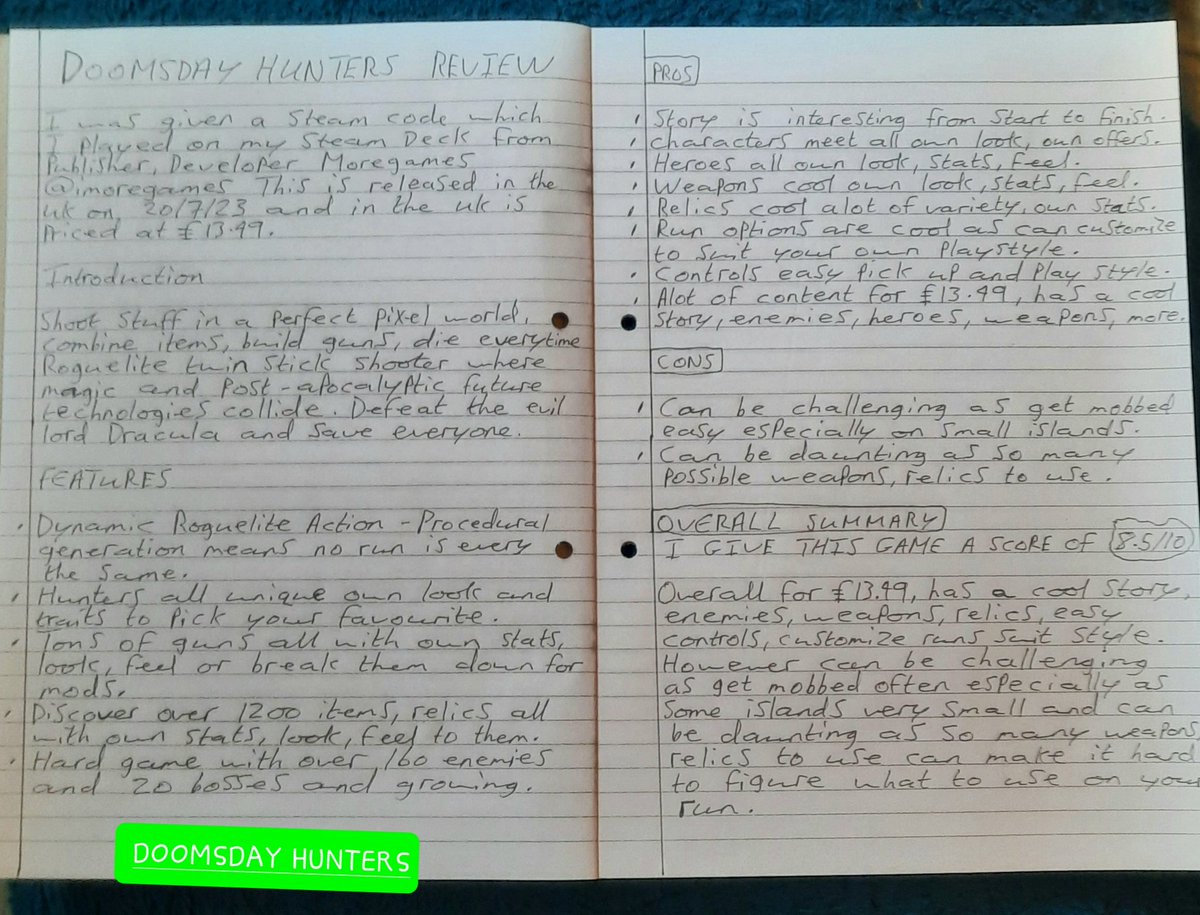 DOOMSDAY HUNTERS REVIEW
I was given a Steam code which
I played on my Steam Deck from
Publisher, Developer Moregames
@imoregames This is released in the
uk on, 20/7/23 and in the uk is
Priced at £13.49.
Introduction
Shoot stuff in a perfect pixel world,
combine items, build guns, die everytime
Roguelite twin stick shooter where
magic and Post-apocalyptic future
technologies collide. Defeat the evil
lord Dracula and save everyone.
FEATURES
• Dynamic Roguelite Action - Procedural
generation means no run is every
the same.
• Hunters all unique own look and
traits to pick your favourite.
• Tons of guns all with own stats,
look, feel or break them down for
mods.
• Discover over 1200 items, relics all
with own stats, look, feel to them.
• Hard game with over 160 enemies
and 20 bosses and growing.
DOOMSDAY HUNTERS
PROS
• Story is interesting from start to finish.
• Characters meet all own look, own offers.
• Heroes all own look, stats, feel.
• Weapons cool own look, stats, feel.
• Relics cool alot of variety, own stats.
• Run options are cool as can customize
to suit your own Playstyle.
• Controls easy pick up and Play style.
• Alot of content for £13.49, has a cool
story, enemies, heroes, weapons, more.
CONS
• Can be challenging as get mobbed
easy especially on small islands.
• Can be daunting as so many
possible weapons, relics to use.
OVERALL SUMMARY
I GIVE THIS GAME A SCORE OF 8.5/10
Overall for £13.49, has a cool story,
enemies, weapons, relics, easy
controls, customize runs suit style.
However can be challenging
as get mobbed often especially as
some islands very small and can
be daunting as so many weapons,
relics to use can make it hard
to figure what to use on your
run.